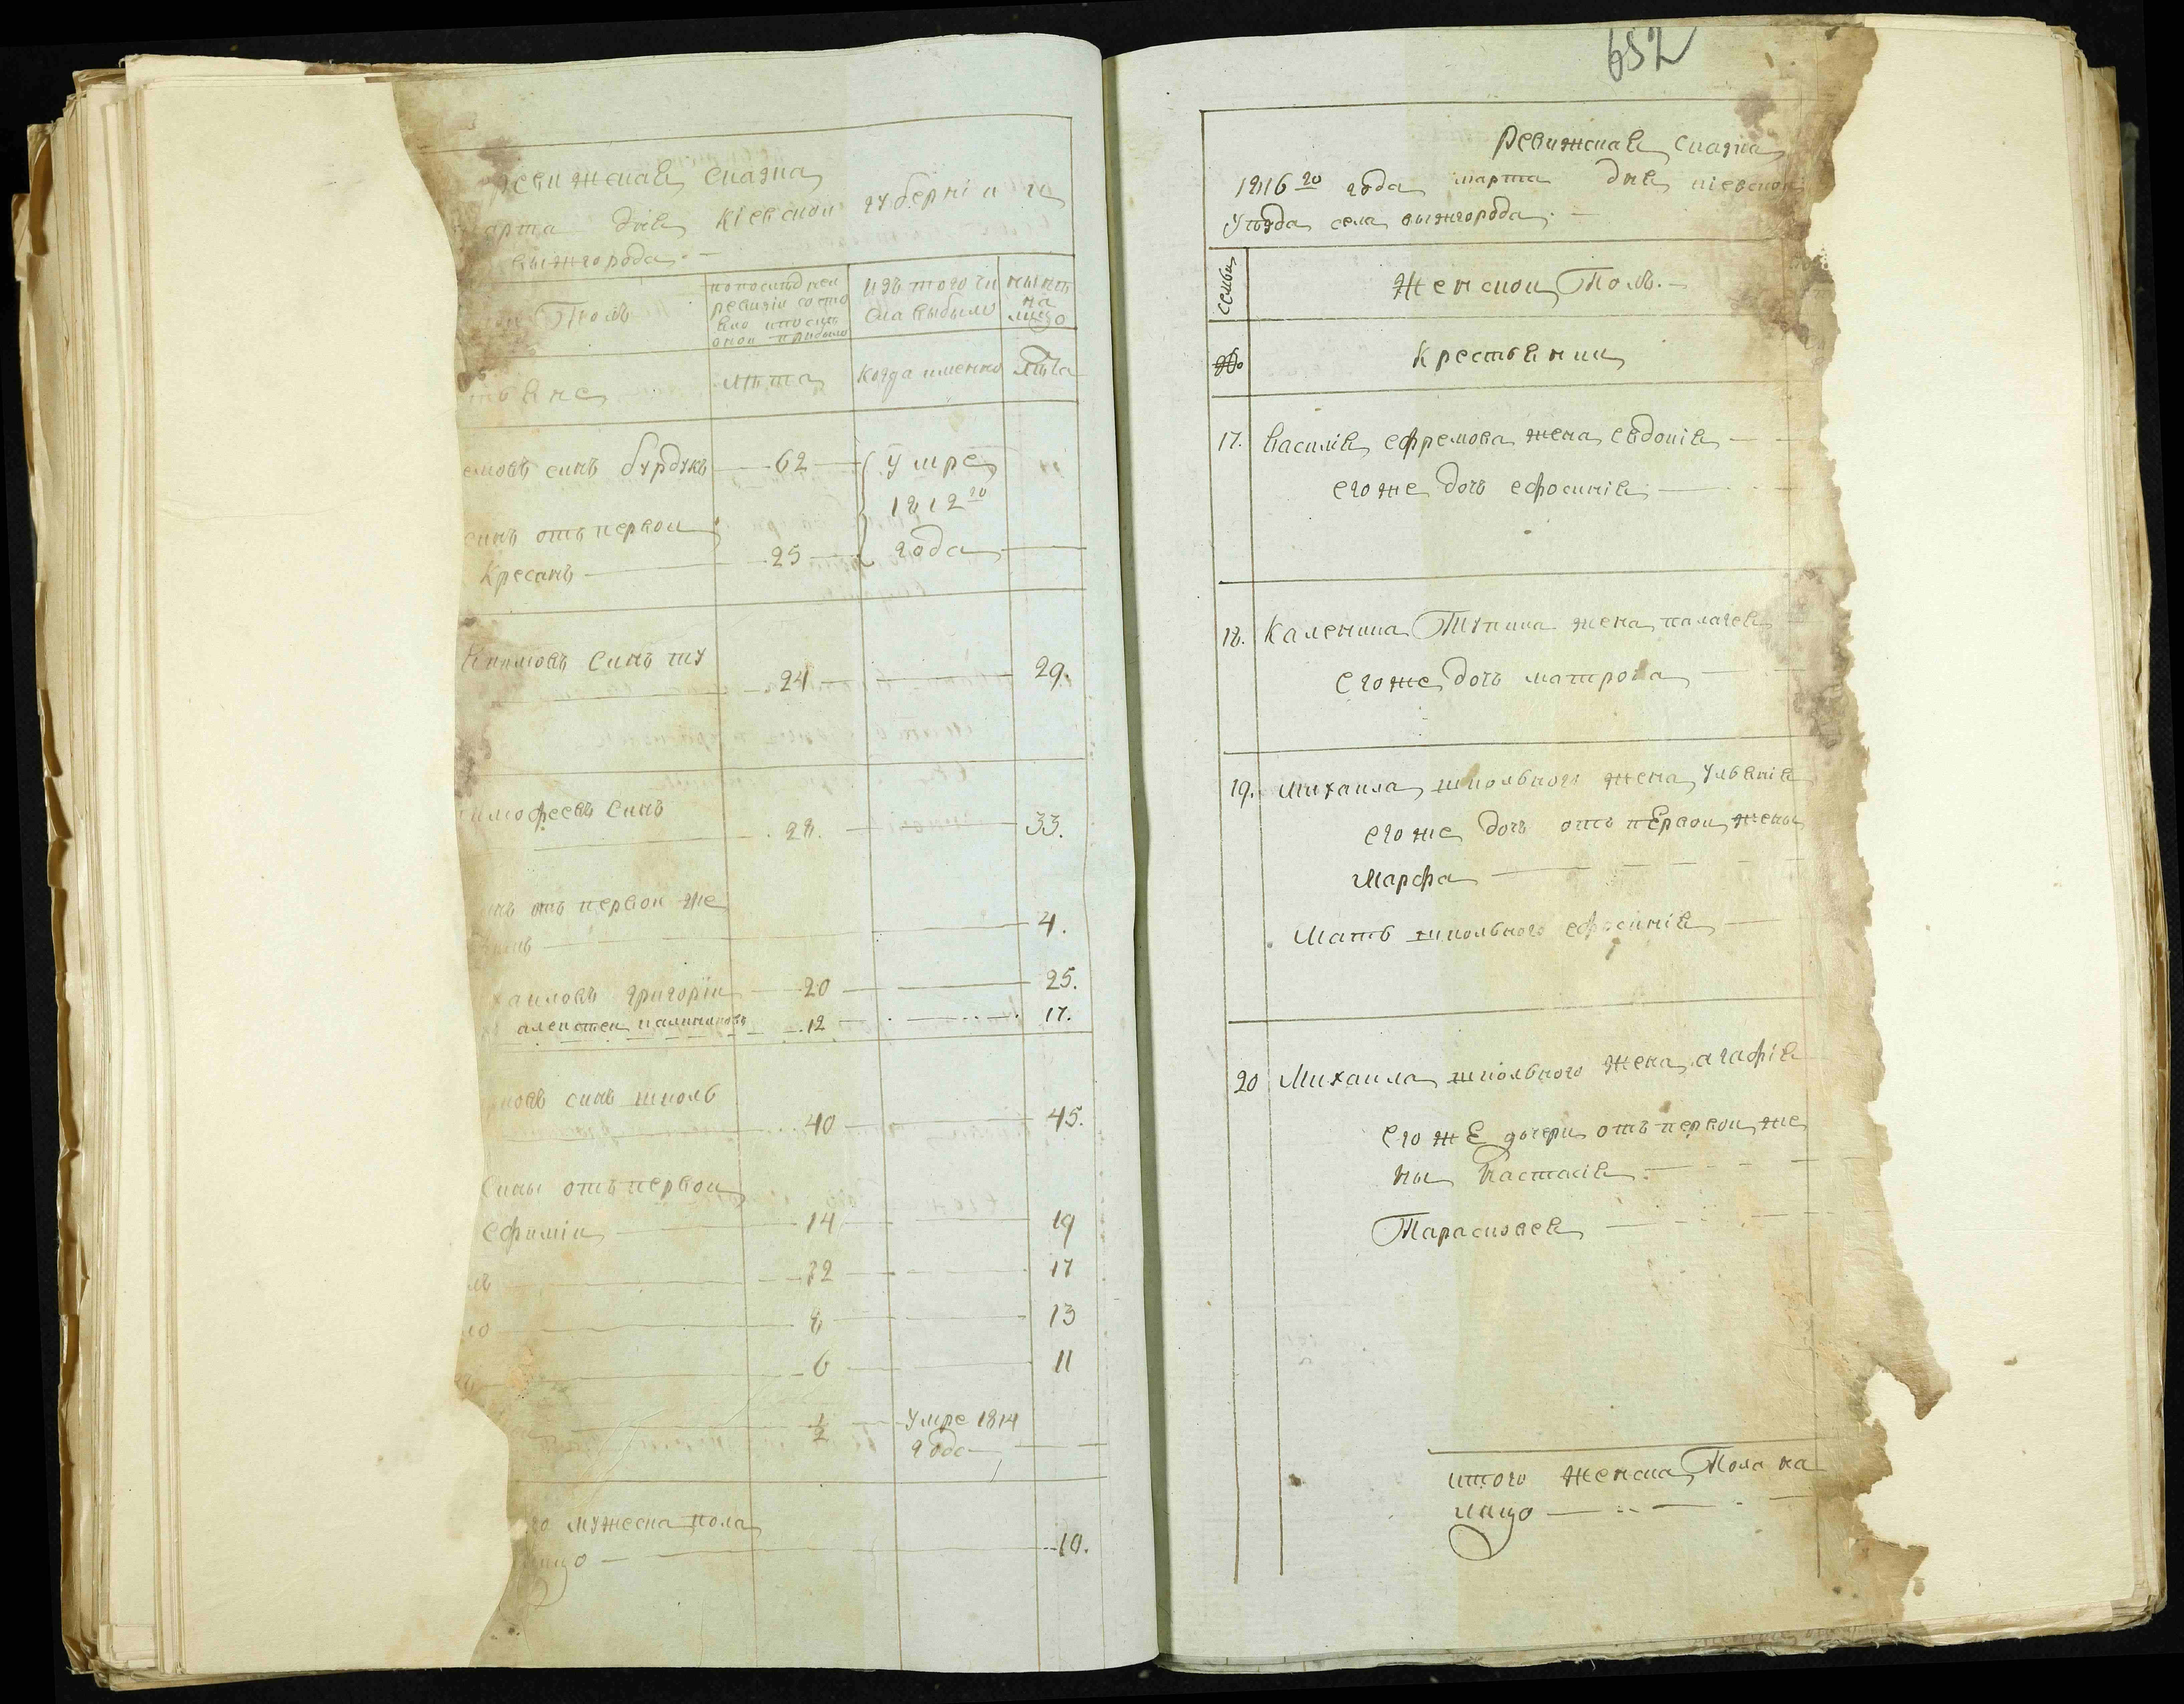 ревижская сказка
марта дня кіевской губерніи и
вышгорода
Полъ
по последней ревизіи состо
яло и после оной прибыло
изъ того чи
сла выбыло
ныне
на
лицо
тьяне
лѣта
когда именно
лѣта
емовъ синъ бурдукъ 62 умре
1812го
синъ отъ первой
25 года
Кресанъ
кимовъ синъ ту
24 29.
имофеевъ синъ
28. 33.
нъ отъ первой же
4.
хаиловъ григорій 20 25.
алексей калиниковъ 12 17.
новъ синъ школь
40 45.
Сины отъ первой
ефимій 14 19
лъ 12 17
ло 8 13
6 11
1/2 умре 1814
года
го мужеска пола
лицо 10.
652
Ревижская сказка
1816го года марта дня кіевской
уѣзда села вышгорода
семьи
Женской Полъ.
Крестьянки
17. Василія ефремова жена евдокія
его же дочь ефросинія
18. Каленика Тупика жена палагея
его же дочь матрона
19. Михаила школьного жена ульянія
его же дочь отъ первой жены
Марфа
Мать школьного ефросинія
20 Михаила школьного жена агафія
его же дочери отъ первой же
ны Настасія
Тарасковея
итого женска Пола на
лицо